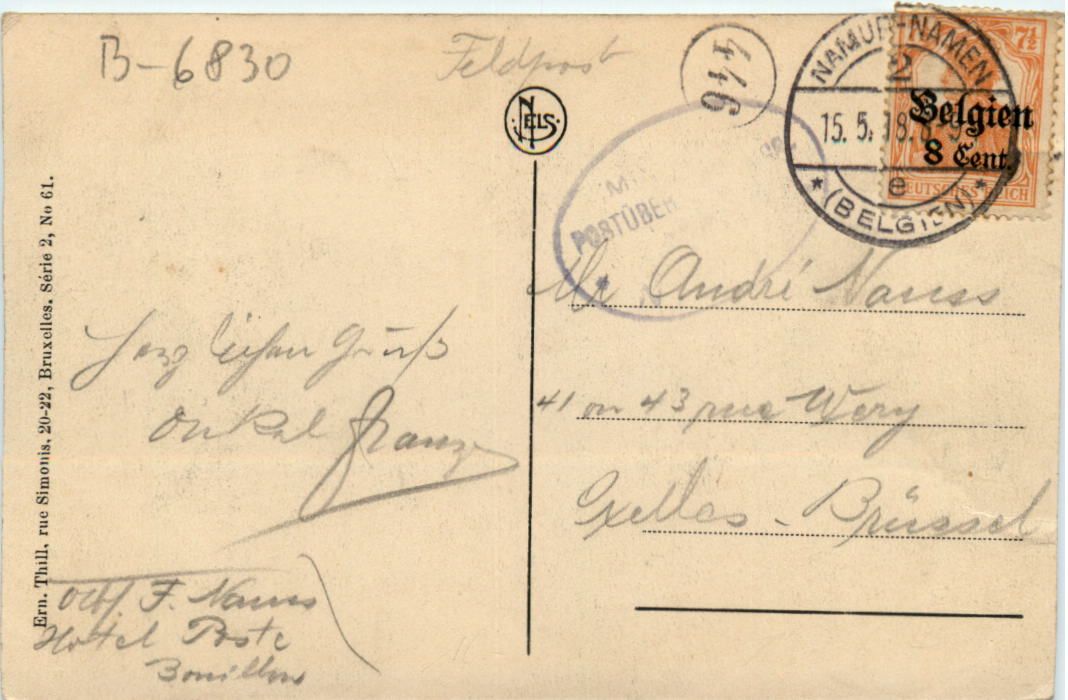 B-6830
Feldpost
446
NELS
NAMUR-NAMEN
2
15. 5. 18. 8-9
e
* (BELGIEN) *
7½
Belgien
8 Cent.
DEUTSCHES REICH
M
POSTÜBER
Mr André Nauss
41 ou 43 rue Wery
Ixelles - Brüssel
Herzlichen Gruß
Onkel Franz
F. Nauss
Hotel Poste
Bouillon
Ern. Thill, rue Simonis, 20-22, Bruxelles. Série 2, No 61.